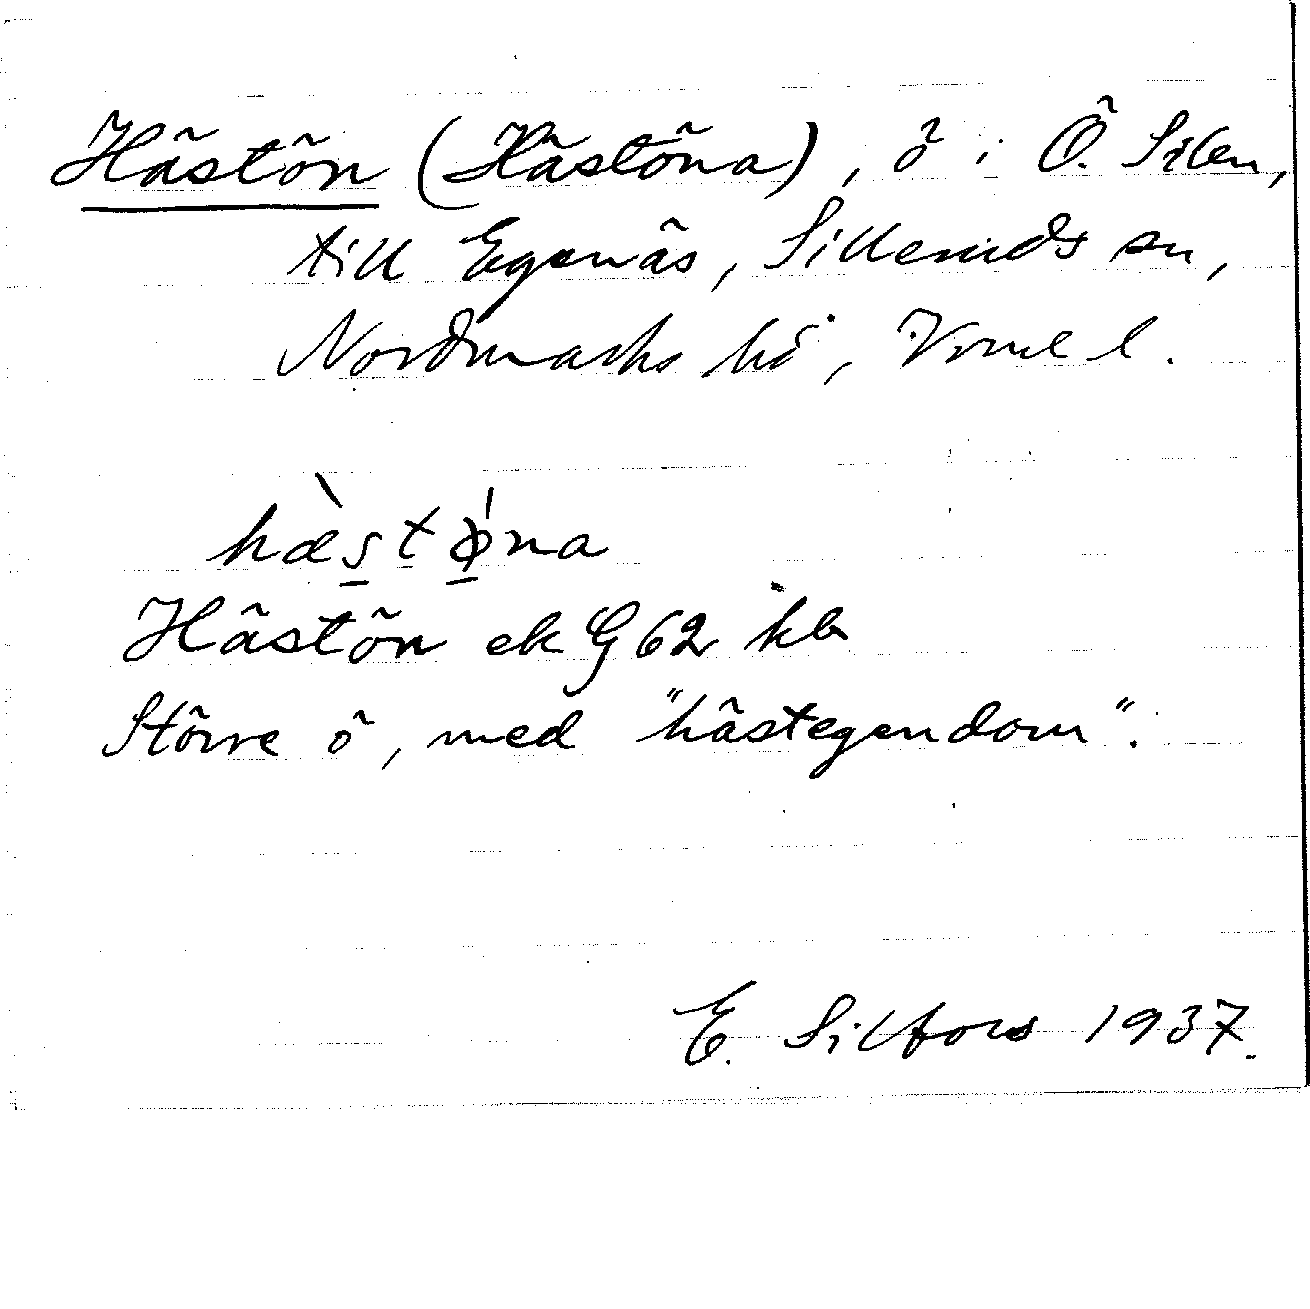 Hästön (Hästöna), ö i Ö. Silen,
till Egenäs, Silleruds sn,
Nordmarks hd, Vrml l.
hæ̀s̱tǿ̱na
Hästön ek G 62 kb
Större ö, med "hästegendom".
E. Silfors 1937.